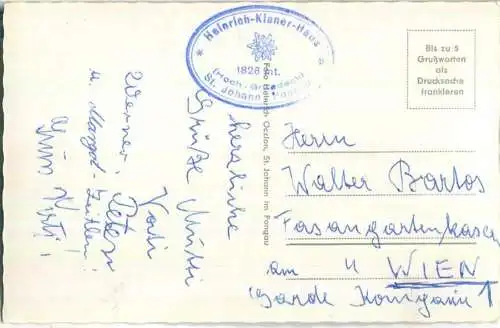 Heinrich-Kiener-Haus
1826 mt.
(Hoch-Gründeck)
St. Johann i. Pongau
Bis zu 5
Grußworten
als
Drucksache
frankieren
Foto Heinrich Oczlon, St. Johann im Pongau
herzliche
Grüße Mutti
Vati
Peter
Werner
u. Margot
Herrn
Walter Bartos
Fasangartenkaserne
am
WIEN
Garde Kompanie 1